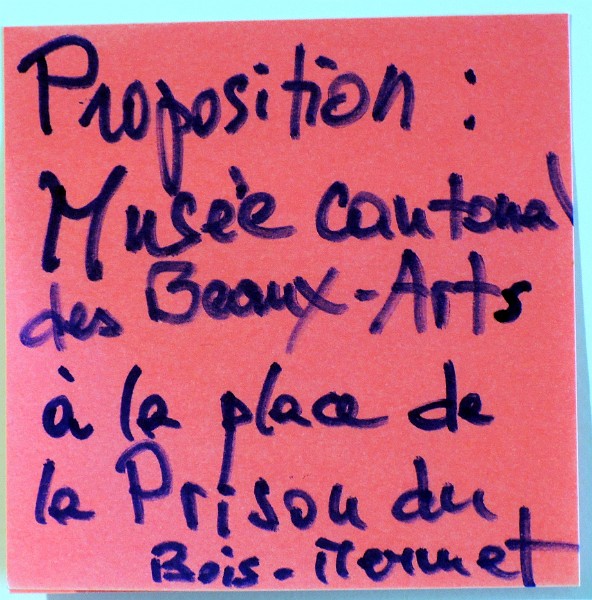 Proposition :
Musée cantonal
des Beaux-Arts
à la place de
la Prison du
Bois-Mermet